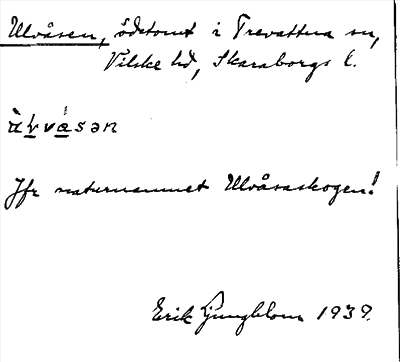 Ulvåsen, ödetomt i Trevattna sn,
Vilske hd, Skaraborgs l.
Jfr naturnamnet Ulvåsaskogen!
Erik Ljungblom 1939.